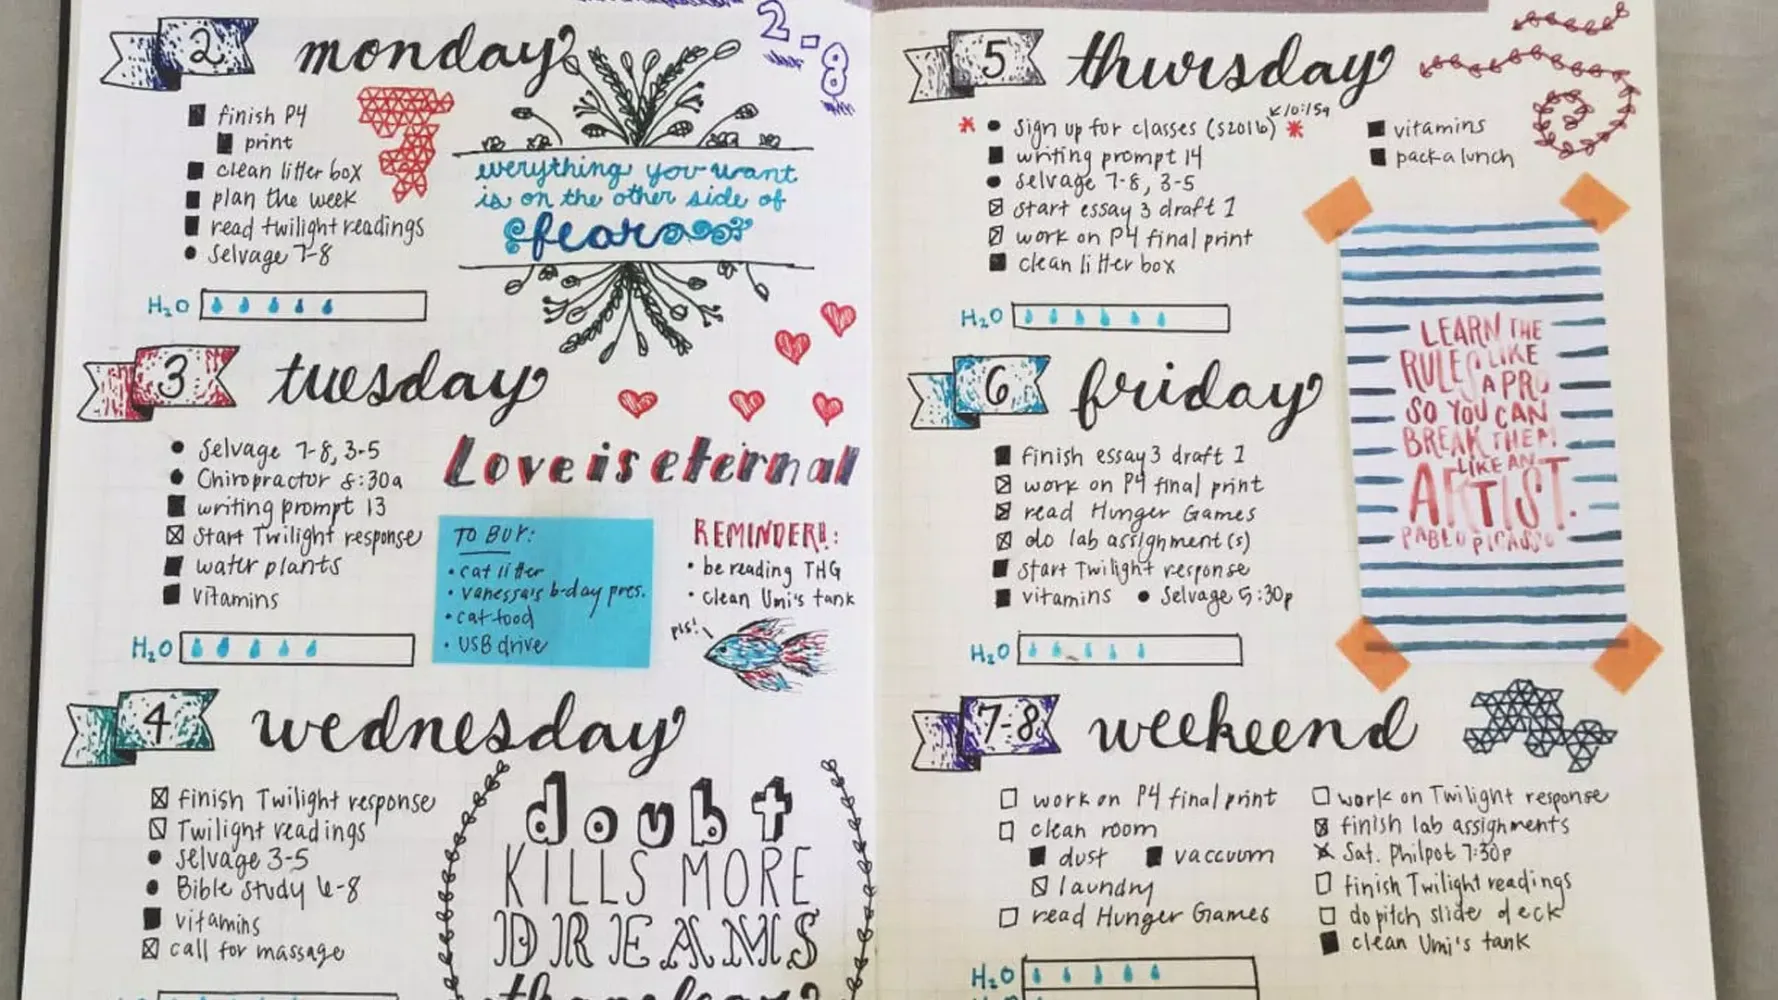 2 monday
2.8
finish P4
print
clean litter box
plan the week
read twilight readings
Selvage 7-8
H₂O
everything you want
is on the other side of
fear
3 tuesday
Selvage 7-8, 3-5
Chiropractor 8:30a
writing prompt 13
Start Twilight response
water plants
vitamins
H₂O
Love is eternal
TO BUY:
• cat litter
• vanessa's b-day pres.
• cat food
• USB drive
REMINDER!!:
• be reading THG
• clean Umi's tank
pls!
4 wednesday
finish Twilight response
Twilight readings
Selvage 3-5
Bible study 6-8
vitamins
call for massage
doubt
KILLS MORE
DREAMS
5 thursday
10:15a
* • sign up for classes (S2016) *
writing prompt 14
selvage 7-8, 3-5
start essay 3 draft 1
work on P4 final print
clean litter box
vitamins
pack a lunch
H₂O
LEARN THE
RULES LIKE
A PRO
SO YOU CAN
BREAK THEM
LIKE AN
ARTIST.
PABLO PICASSO
6 friday
finish essay 3 draft 1
work on P4 final print
read Hunger Games
do lab assignment(s)
start Twilight response
vitamins • Selvage 5:30p
H₂O
7-8 weekend
work on P4 final print
clean room
dust vaccuum
laundry
read Hunger Games
work on Twilight response
finish lab assignments
Sat. Philpot 7:30p
finish Twilight readings
do pitch slide deck
clean Umi's tank
H₂O